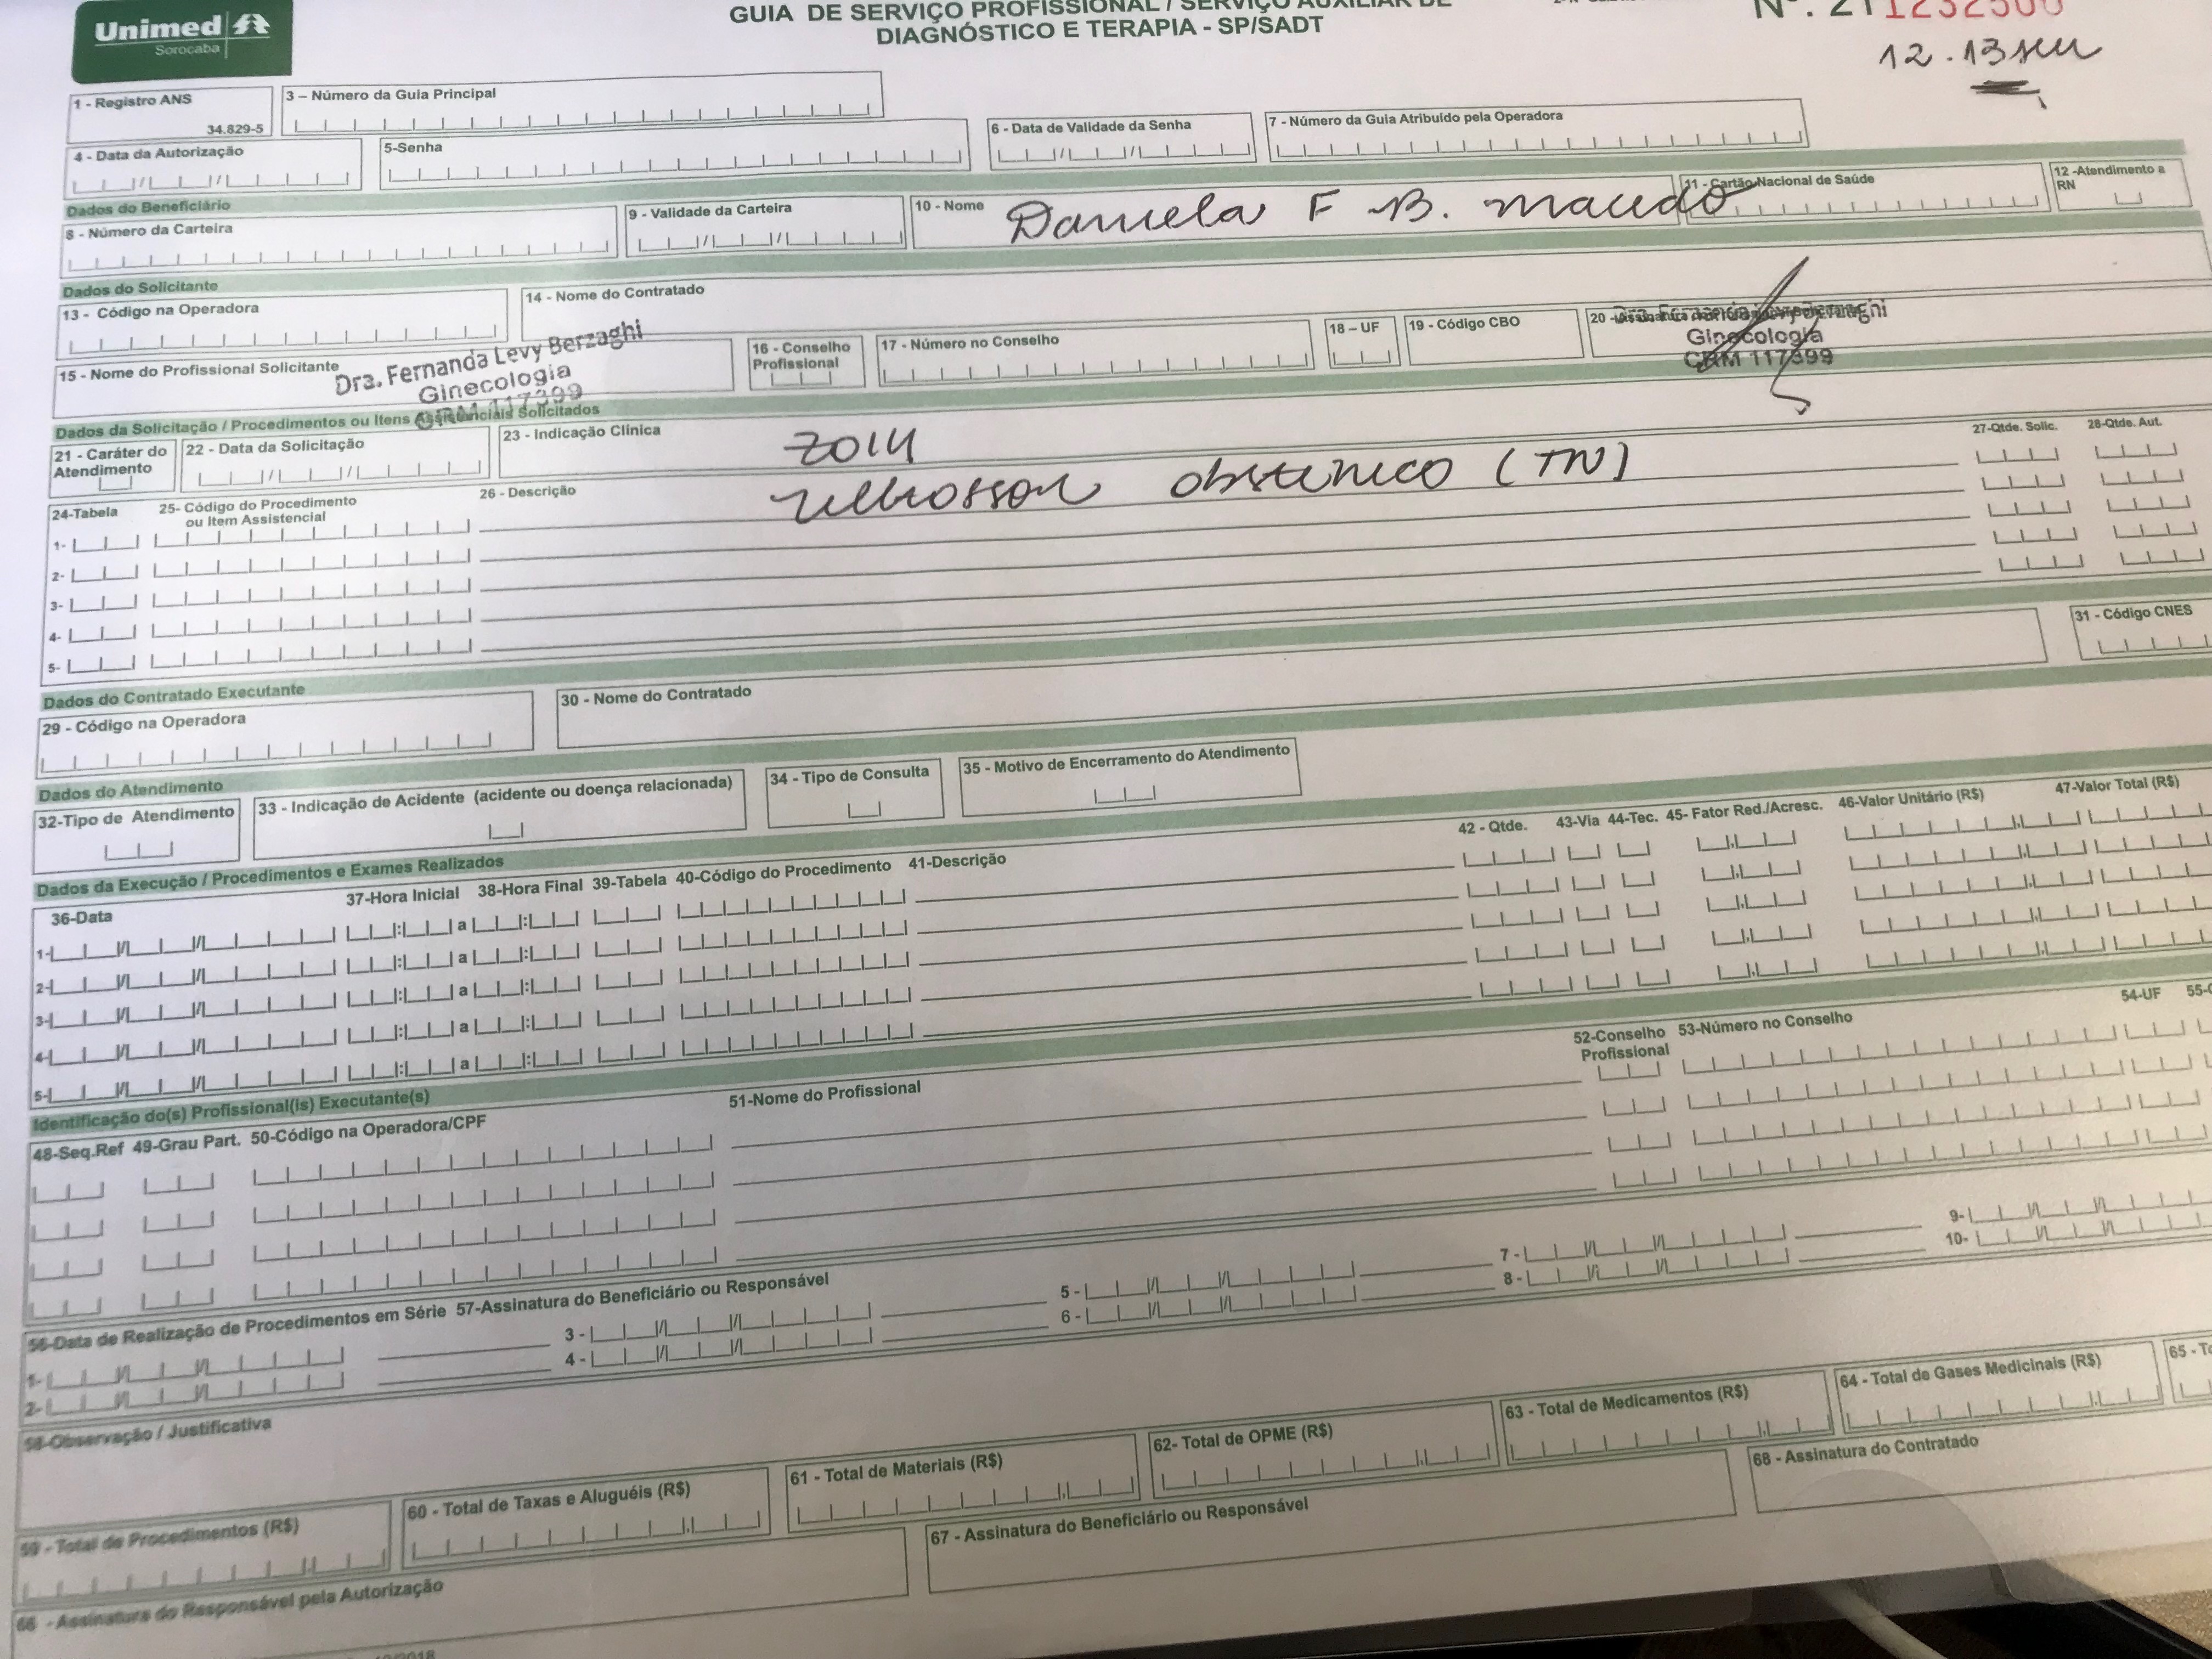 Unimed
Sorocaba
GUIA DE SERVIÇO PROFISSIONAL / SERVIÇO AUXILIAR DE
DIAGNÓSTICO E TERAPIA - SP/SADT
12.13 sem
1 - Registro ANS
34.829-5
3 – Número da Guia Principal
4 - Data da Autorização
5-Senha
6 - Data de Validade da Senha
7 - Número da Guia Atribuído pela Operadora
Dados do Beneficiário
8 - Número da Carteira
9 - Validade da Carteira
10 - Nome
Daniela F B. Macedo
11 - Cartão Nacional de Saúde
12 -Atendimento a
RN
Dados do Solicitante
13 - Código na Operadora
14 - Nome do Contratado
15 - Nome do Profissional Solicitante
Dra. Fernanda Levy Berzaghi
Ginecologia
CRM 117399
16 - Conselho
Profissional
17 - Número no Conselho
18 – UF
19 - Código CBO
20 -
Ginecologia
CRM 117399
Dados da Solicitação / Procedimentos ou Itens Assistenciais Solicitados
21 - Caráter do
Atendimento
22 - Data da Solicitação
23 - Indicação Clínica
24-Tabela
25- Código do Procedimento
ou Item Assistencial
26 - Descrição
27-Qtde. Solic.
28-Qtde. Aut.
Ultrassom obstetrico (TN)
1-
2-
3-
4-
5-
Dados do Contratado Executante
29 - Código na Operadora
30 - Nome do Contratado
31 - Código CNES
Dados do Atendimento
32-Tipo de Atendimento
33 - Indicação de Acidente (acidente ou doença relacionada)
34 - Tipo de Consulta
35 - Motivo de Encerramento do Atendimento
Dados da Execução / Procedimentos e Exames Realizados
36-Data
37-Hora Inicial
38-Hora Final
39-Tabela
40-Código do Procedimento
41-Descrição
42 - Qtde.
43-Via
44-Tec.
45- Fator Red./Acresc.
46-Valor Unitário (R$)
47-Valor Total (R$)
1- a
2- a
3- a
4- a
5- a
Identificação do(s) Profissional(is) Executante(s)
48-Seq.Ref
49-Grau Part.
50-Código na Operadora/CPF
51-Nome do Profissional
52-Conselho
Profissional
53-Número no Conselho
54-UF
56-Data de Realização de Procedimentos em Série
57-Assinatura do Beneficiário ou Responsável
1-
3 -
5 -
7 -
9-
2-
4 -
6 -
8 -
10-
58-Observação / Justificativa
59 - Total de Procedimentos (R$)
60 - Total de Taxas e Aluguéis (R$)
61 - Total de Materiais (R$)
62- Total de OPME (R$)
63 - Total de Medicamentos (R$)
64 - Total de Gases Medicinais (R$)
66 - Assinatura do Responsável pela Autorização
67 - Assinatura do Beneficiário ou Responsável
68 - Assinatura do Contratado